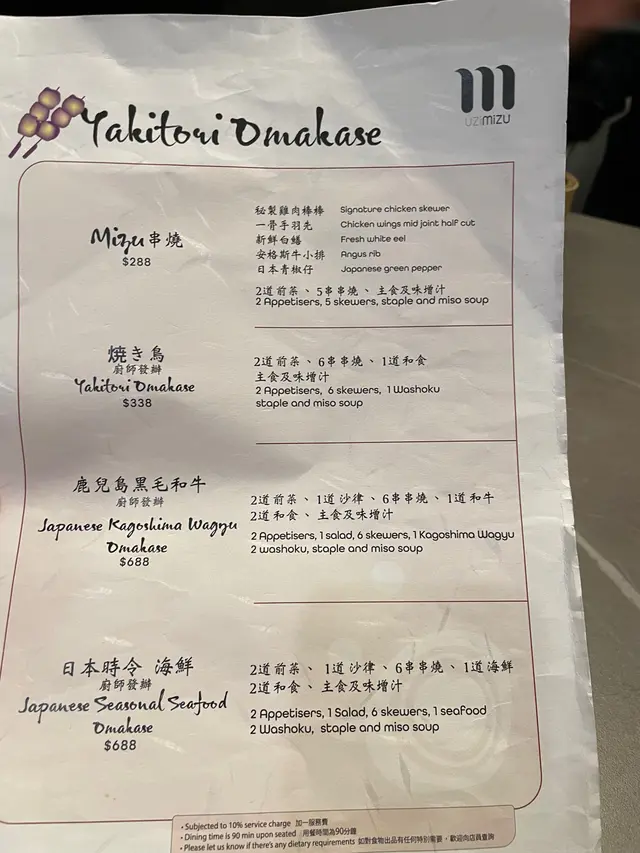 UZIMIZU
Yakitori Omakase
Mizu串燒
$288
秘製雞肉棒棒 Signature chicken skewer
一骨手羽先 Chicken wings mid joint half cut
新鮮白鱔 Fresh white eel
安格斯牛小排 Angus rib
日本青椒仔 Japanese green pepper
2道前菜、5串串燒、主食及味增汁
2 Appetisers, 5 skewers, staple and miso soup
焼き鳥
廚師發辦
Yakitori Omakase
$338
2道前菜、6串串燒、1道和食
主食及味增汁
2 Appetisers, 6 skewers, 1 Washoku
staple and miso soup
鹿兒島黑毛和牛
廚師發辦
Japanese Kagoshima Wagyu
Omakase
$688
2道前菜、1道沙律、6串串燒、1道和牛
2道和食、主食及味增汁
2 Appetisers, 1 salad, 6 skewers, 1 Kagoshima Wagyu
2 washoku, staple and miso soup
日本時令 海鮮
廚師發辦
Japanese Seasonal Seafood
Omakase
$688
2道前菜、1道沙律、6串串燒、1道海鮮
2道和食、主食及味增汁
2 Appetisers, 1 Salad, 6 skewers, 1 seafood
2 Washoku, staple and miso soup
• Subjected to 10% service charge 加一服務費
• Dining time is 90 min upon seated 用餐時間為90分鐘
• Please let us know if there's any dietary requirements 如對食物出品有任何特別需要，歡迎向店員查詢